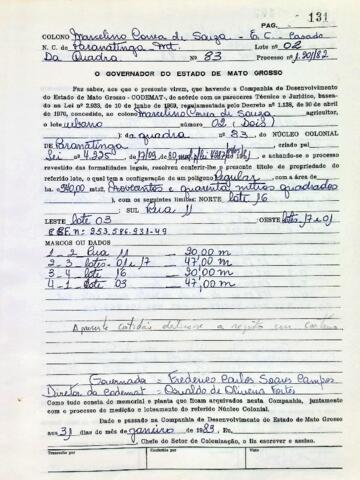 PAG. 131
COLONO Marcelino Correa de Souza - E.C. Casado
N. C. de Paranatinga Mt. Lote nº 02
Da Quadra Nº 83 Processo nº 1.201/82
O GOVERNADOR DO ESTADO DE MATO GROSSO
Faz saber, aos que o presente virem, que havendo a Companhia de Desenvolvimento
do Estado de Mato Grosso - CODEMAT-, de acordo com os pareceres Técnico e Jurídico, basea-
dos na Lei nº 2.933, de 10 de junho de 1969, regulamentada pelo Decreto nº 1.138, de 30 de abril
de 1970, concedido, ao colono Marcelino Correa de Souza agricultor,
o lote urbano número 02 (Dois)
); da quadra nº 83. do NÚCLEO COLONIAL
DE Paranatinga, criado pela
Lei 4.225, 17/09, 80, e achando-se o processo
revestido das formalidades legais, resolveu conferir-lhe o presente título de propriedade do
referido lote, o qual tem a configuração de um polígono Regular, com a área de
ha 940,00 mtr2. novecentos e quarenta metros quadrados
), com os seguintes limites: NORTE lote 16
; SUL Rua 11
LESTE lote 03 OESTE lotes 17 e 01
C.P.F. nº 253.586.931-49
MARCOS OU DADOS
1 - 2 Rua 11 - 20,00 m
2 - 3 lotes - 01 e 17 - 47,00 m
3 - 4 lote 16 - 20,00 m
4 - 1 lote 03 - 47,00 m
A presente certidão destina-se a registro em cartório
Governador = Frederico Carlos Soares Campos
Diretor da Codemat = Osvaldo de Oliveira Fortes
Como tudo consta do memorial e planta que ficam arquivados nesta Companhia, juntamente
com o processo de medição e loteamento do referido Núcleo Colonial.
Dado e passado na Companhia de Desenvolvimento do Estado de Mato Grosso
aos 31 dias do mês de janeiro de 1983. Eu,
Chefe do Setor de Colonização, o fiz escrever e assino.
Transcrito por
Conferido por
Visto